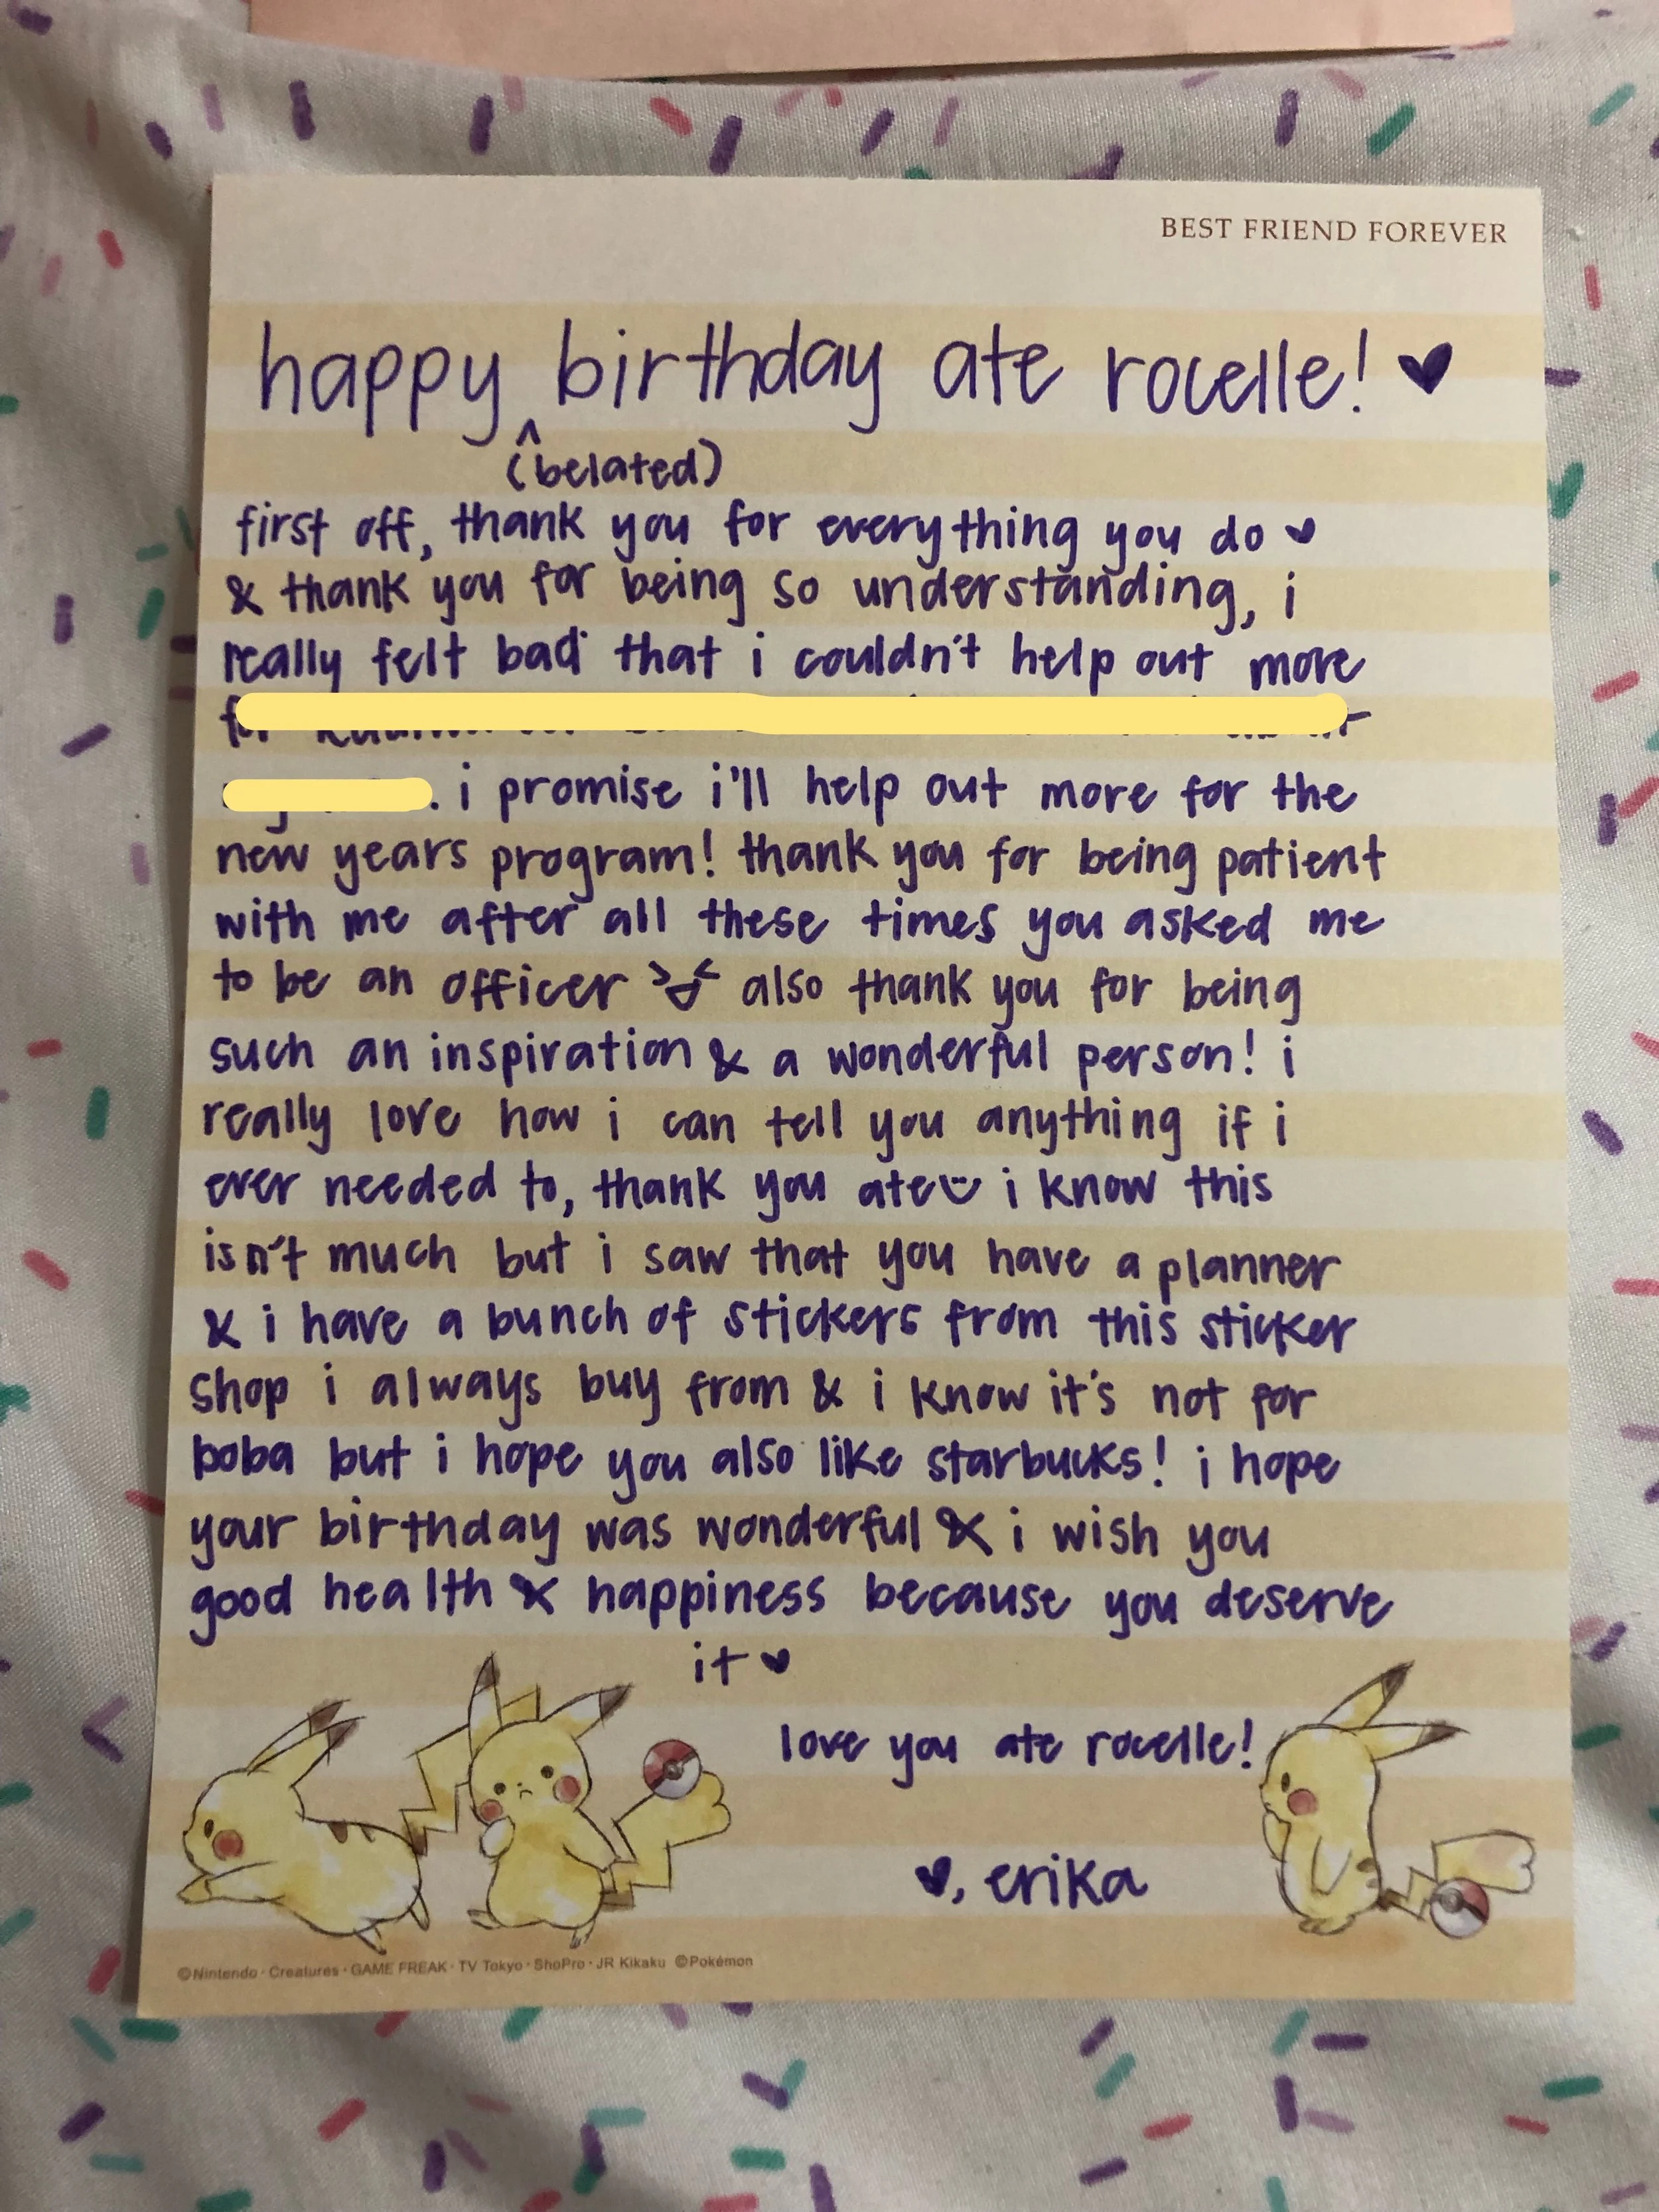 BEST FRIEND FOREVER
happy birthday ate rocelle! ♥
^
(belated)
first off, thank you for everything you do ♥
& thank you for being so understanding, i
really felt bad that i couldn't help out more
for
. i promise i'll help out more for the
new years program! thank you for being patient
with me after all these times you asked me
to be an officer also thank you for being
such an inspiration & a wonderful person! i
really love how i can tell you anything if i
ever needed to, thank you ate i know this
isn't much but i saw that you have a planner
& i have a bunch of stickers from this sticker
shop i always buy from & i know it's not for
boba but i hope you also like starbucks! i hope
your birthday was wonderful & i wish you
good health & happiness because you deserve
it ♥
love you ate rocelle!
♥, erika
©Nintendo · Creatures · GAME FREAK · TV Tokyo · ShoPro · JR Kikaku ©Pokémon